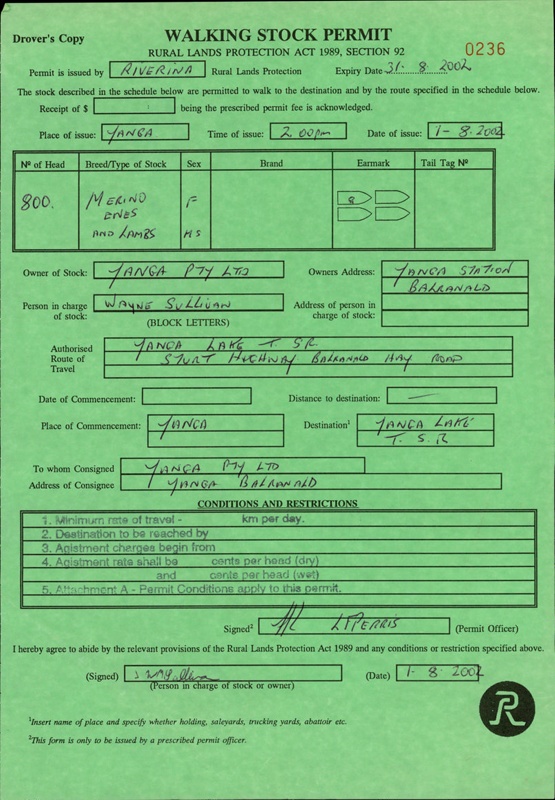 Drover's Copy
WALKING STOCK PERMIT
RURAL LANDS PROTECTION ACT 1989, SECTION 92
0236
Permit is issued by RIVERINA Rural Lands Protection Expiry Date 31-8.2002
The stock described in the schedule below are permitted to walk to the destination and by the route specified in the schedule below.
Receipt of $ : being the prescribed permit fee is acknowledged.
Place of issue: YANGA Time of issue: 2 00pm Date of issue: 1-8.2002
Nº of Head Breed/Type of Stock Sex Brand Earmark Tail Tag Nº
800. MERINO F 8
EWES
AND LAMBS MS
Owner of Stock: YANGA PTY LTD Owners Address: YANGA STATION
BALRANALD
Person in charge of stock: WAYNE SULLIVAN Address of person in charge of stock:
(BLOCK LETTERS)
Authorised Route of Travel YANGA LAKE T. SR.
STURT HIGHWAY BALRANALD HAY ROAD
Date of Commencement: Distance to destination: —
Place of Commencement: YANGA Destination¹ YANGA LAKE
T. S. R
To whom Consigned YANGA PTY LTD
Address of Consignee YANGA BALRANALD
CONDITIONS AND RESTRICTIONS
1. Minimum rate of travel - km per day.
2. Destination to be reached by
3. Agistment charges begin from
4. Agistment rate shall be cents per head (dry)
and cents per head (wet)
5. Attachment A - Permit Conditions apply to this permit.
Signed² (Permit Officer)
I hereby agree to abide by the relevant provisions of the Rural Lands Protection Act 1989 and any conditions or restriction specified above.
(Signed) (Date) 1-8-2002
(Person in charge of stock or owner)
R
¹Insert name of place and specify whether holding, saleyards, trucking yards, abattoir etc.
²This form is only to be issued by a prescribed permit officer.